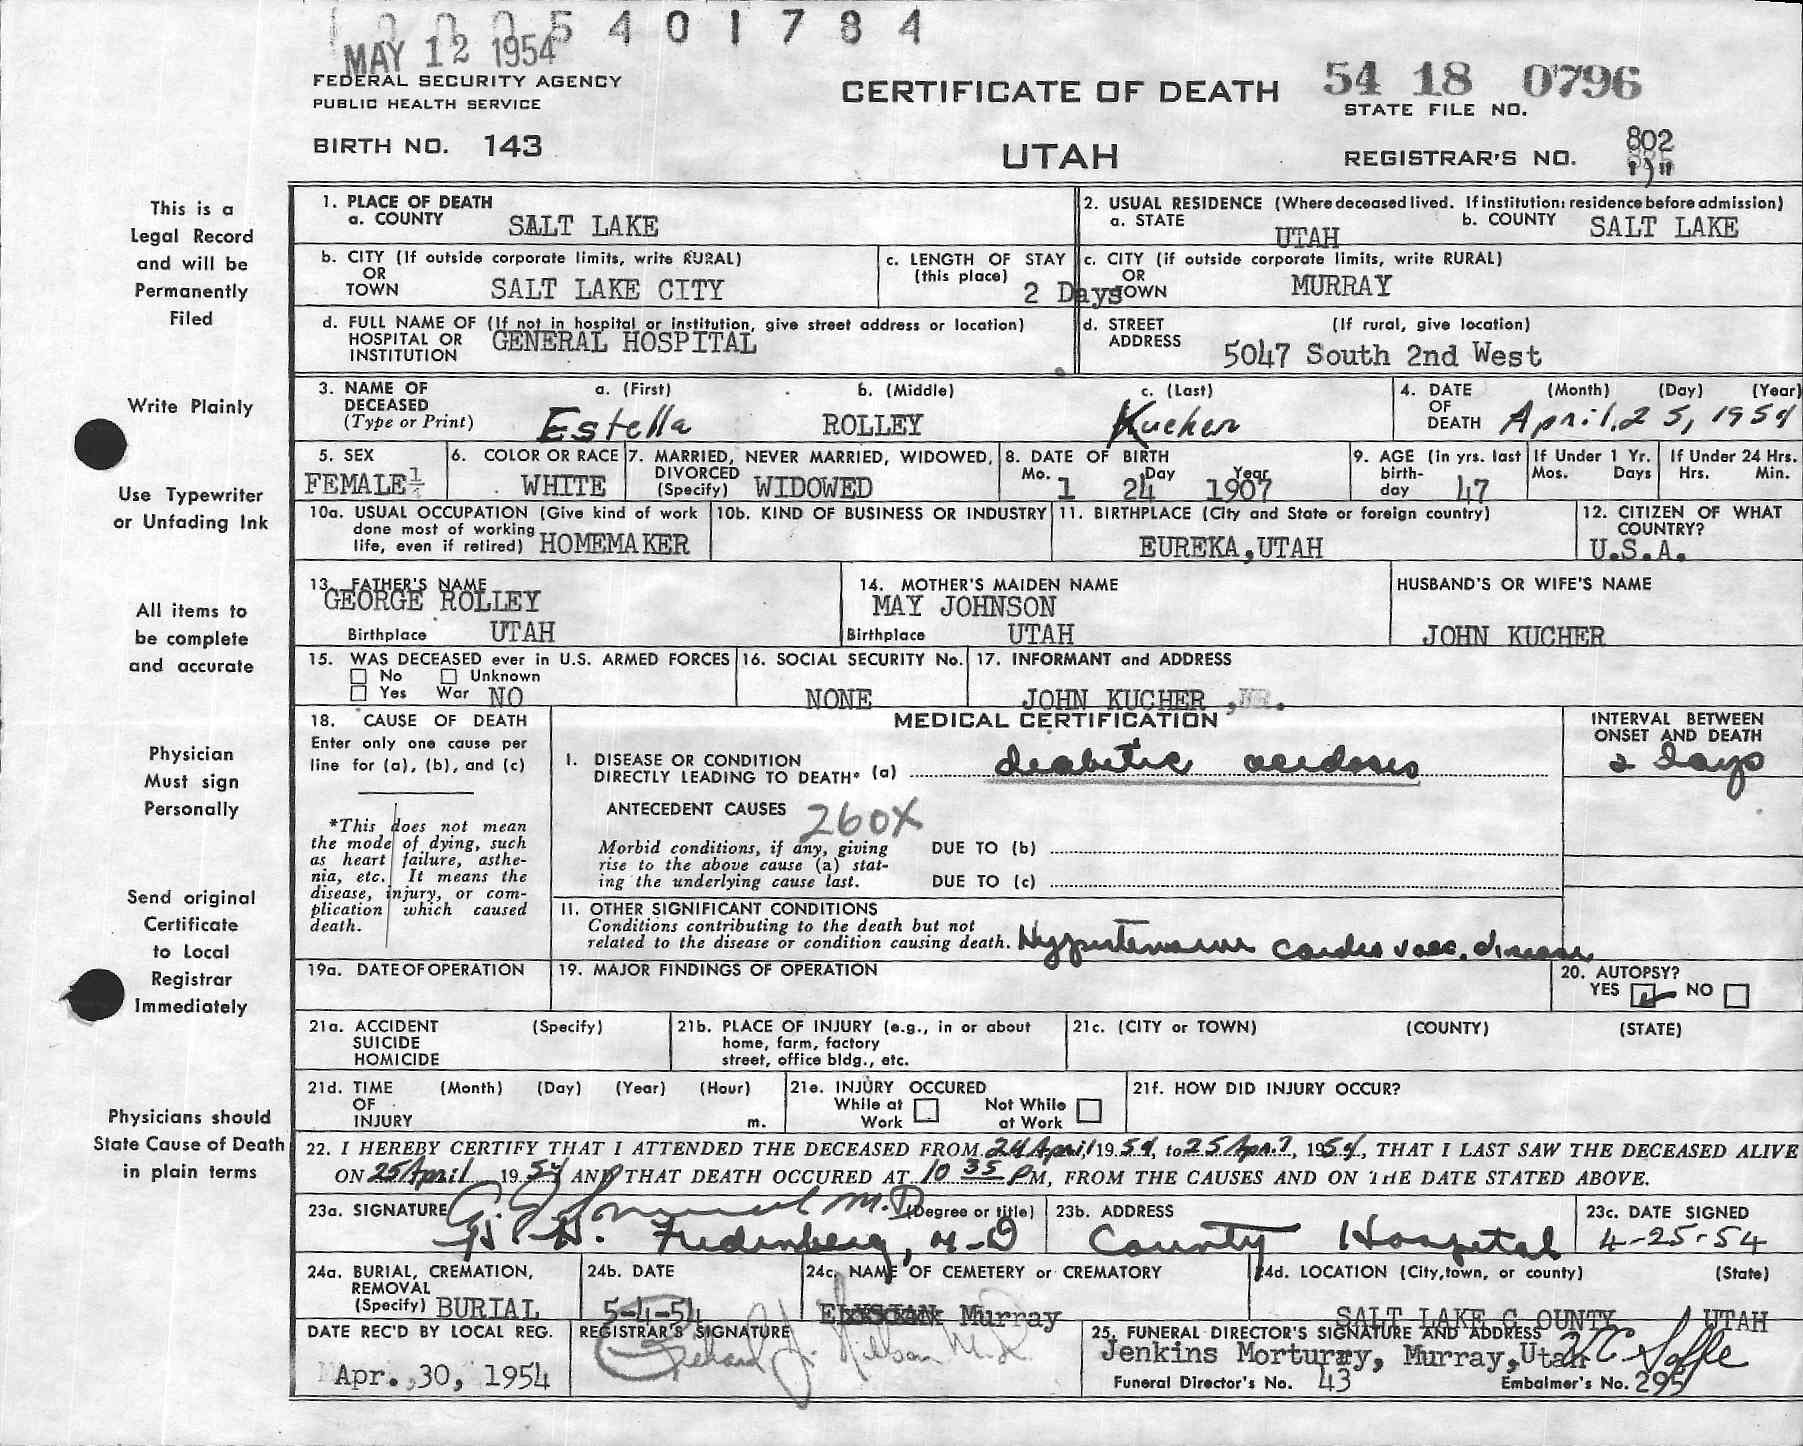 5 4 0 1 7 8 4
MAY 12 1954
FEDERAL SECURITY AGENCY
PUBLIC HEALTH SERVICE
BIRTH NO. 143
CERTIFICATE OF DEATH
UTAH
54 18 0796
STATE FILE NO.
802
REGISTRAR'S NO.
This is a
Legal Record
and will be
Permanently
Filed
Write Plainly
Use Typewriter
or Unfading Ink
All items to
be complete
and accurate
Physician
Must sign
Personally
Send original
Certificate
to Local
Registrar
Immediately
Physicians should
State Cause of Death
in plain terms
1. PLACE OF DEATH
a. COUNTY SALT LAKE
2. USUAL RESIDENCE (Where deceased lived. If institution: residence before admission)
a. STATE UTAH b. COUNTY SALT LAKE
b. CITY (If outside corporate limits, write RURAL)
OR
TOWN SALT LAKE CITY
c. LENGTH OF STAY
(this place) 2 Days
c. CITY (if outside corporate limits, write RURAL)
OR
TOWN MURRAY
d. FULL NAME OF (If not in hospital or institution, give street address or location)
HOSPITAL OR GENERAL HOSPITAL
INSTITUTION
d. STREET (If rural, give location)
ADDRESS 5047 South 2nd West
3. NAME OF a. (First) b. (Middle) c. (Last)
DECEASED
(Type or Print) Estella ROLLEY Kucher
4. DATE (Month) (Day) (Year)
OF
DEATH April, 25, 1954
5. SEX
FEMALE
6. COLOR OR RACE
WHITE
7. MARRIED, NEVER MARRIED, WIDOWED,
DIVORCED
(Specify) WIDOWED
8. DATE OF BIRTH
Mo. Day Year
1 24 1907
9. AGE (in yrs. last
birth-
day 47
If Under 1 Yr.
Mos. Days
If Under 24 Hrs.
Hrs. Min.
10a. USUAL OCCUPATION (Give kind of work
done most of working
life, even if retired) HOMEMAKER
10b. KIND OF BUSINESS OR INDUSTRY
11. BIRTHPLACE (City and State or foreign country)
EUREKA,UTAH
12. CITIZEN OF WHAT
COUNTRY?
U.S.A.
13. FATHER'S NAME
GEORGE ROLLEY
Birthplace UTAH
14. MOTHER'S MAIDEN NAME
MAY JOHNSON
Birthplace UTAH
HUSBAND'S OR WIFE'S NAME
JOHN KUCHER
15. WAS DECEASED ever in U.S. ARMED FORCES
No Unknown
Yes War NO
16. SOCIAL SECURITY No.
NONE
17. INFORMANT and ADDRESS
JOHN KUCHER
18. CAUSE OF DEATH
Enter only one cause per
line for (a), (b), and (c)
*This does not mean
the mode of dying, such
as heart failure, asthe-
nia, etc. It means the
disease, injury, or com-
plication which caused
death.
MEDICAL CERTIFICATION
I. DISEASE OR CONDITION
DIRECTLY LEADING TO DEATH* (a) diabetic acidosis
INTERVAL BETWEEN
ONSET AND DEATH
2 days
ANTECEDENT CAUSES 260X
Morbid conditions, if any, giving
rise to the above cause (a) stat-
ing the underlying cause last.
DUE TO (b)
DUE TO (c)
II. OTHER SIGNIFICANT CONDITIONS
Conditions contributing to the death but not
related to the disease or condition causing death. Hypertensive cardio vasc. disease
19a. DATE OF OPERATION
19. MAJOR FINDINGS OF OPERATION
20. AUTOPSY?
YES NO
21a. ACCIDENT (Specify)
SUICIDE
HOMICIDE
21b. PLACE OF INJURY (e.g., in or about
home, farm, factory
street, office bldg., etc.
21c. (CITY or TOWN) (COUNTY) (STATE)
21d. TIME (Month) (Day) (Year) (Hour)
OF
INJURY m.
21e. INJURY OCCURED
While at Work Not While at Work
21f. HOW DID INJURY OCCUR?
22. I HEREBY CERTIFY THAT I ATTENDED THE DECEASED FROM 24 April, 1954, to 25 Apr., 1954, THAT I LAST SAW THE DECEASED ALIVE
ON 25 April 1954 AND THAT DEATH OCCURED AT 10 35 PM, FROM THE CAUSES AND ON THE DATE STATED ABOVE.
23a. SIGNATURE M.D. (Degree or title)
H. Fredenberg, M-D
23b. ADDRESS
County Hospital
23c. DATE SIGNED
4-25-54
24a. BURIAL, CREMATION,
REMOVAL
(Specify) BURIAL
24b. DATE
5-4-54
24c. NAME OF CEMETERY or CREMATORY
ELYSIAN Murray
24d. LOCATION (City, town, or county) (State)
SALT LAKE C OUNTY UTAH
DATE REC'D BY LOCAL REG.
Apr. 30, 1954
REGISTRAR'S SIGNATURE
Richard J. Nielson M.D.
25. FUNERAL DIRECTOR'S SIGNATURE AND ADDRESS
Jenkins Morturry, Murray,Utah
Funeral Director's No. 43 Embalmer's No. 295